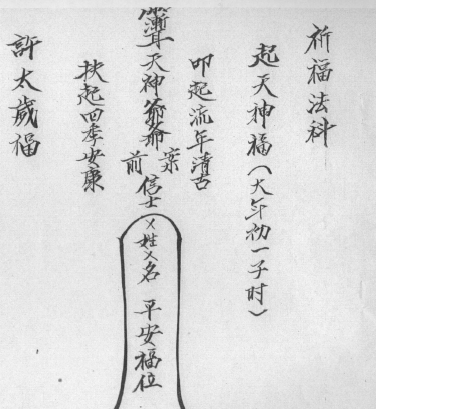 祈福法科
起天神福(大年初一子时)
叩起流年清吉
聾天神爺爺案前
信士乂姓乂名 平安福位
扶起四季安康
許太歲福